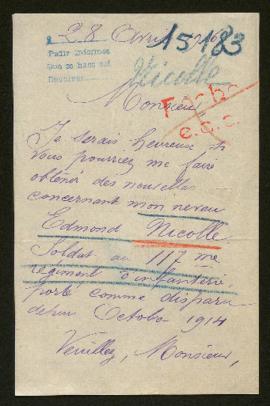 28 Avril
15183
Pedir informes
Que se hace así
Nicolle
Monsieur
Fecho
Je serais heureuse si
vous pourriez me faire
obtenir des nouvelles
concernant mon neveu
Edmond Nicolle
Soldat au 117 me
régiment d'infanterie
porté comme disparu
depuis Octobre 1914
Veuillez, Monsieur,